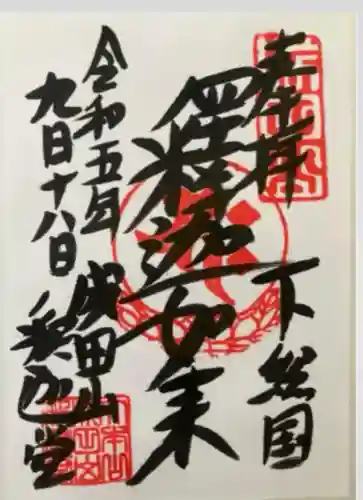 奉拝
下総国
釋迦如来
令和五年
九月十八日
成田山
釈迦堂